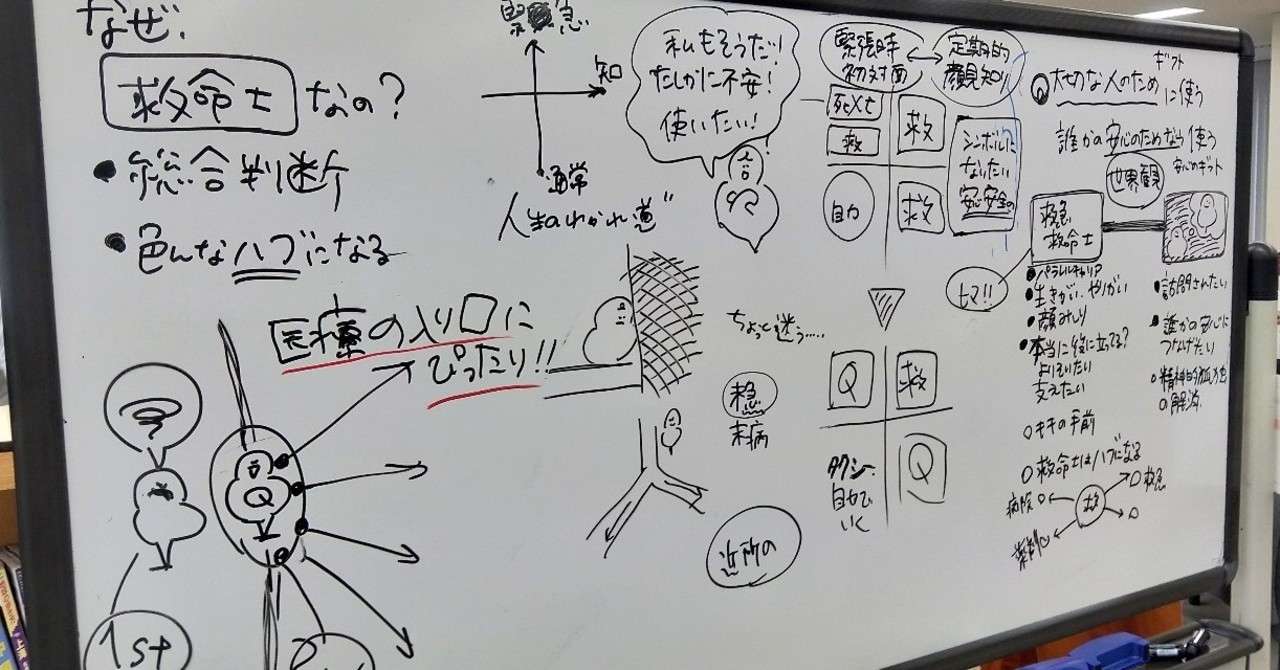 なぜ.
救命士 なの?
• 総合判断
• 色んなハブになる
医療の入り口に
ぴったり!!
Q
1st
緊急
知
通常
人生のわかれ道
私もそうだ!
たしかに不安!
使いたい!
緊張時
初対面
定期的
顔見知り
救
救
自力
救
シンボルに
なりたい
安心安全の
ちょっと迷う.....
未病
近所の
Q
救
タクシー
自力で
いく
Q
ギフト
Q 大切な人のため に使う
誰かの安心のためなら使う
安心のギフト
世界観
救急
救命士
• パラレルキャリア
• 生きがい、やりがい
• 顔みしり
• 本当に役に立ってる?
よりそいたい
支えたい
○ キキの手前
○ 救命士はハブになる
病院
救
救急
薬剤
• 訪問されたい
• 誰かの安心に
つなげたい
○ 精神的孤独
の解消